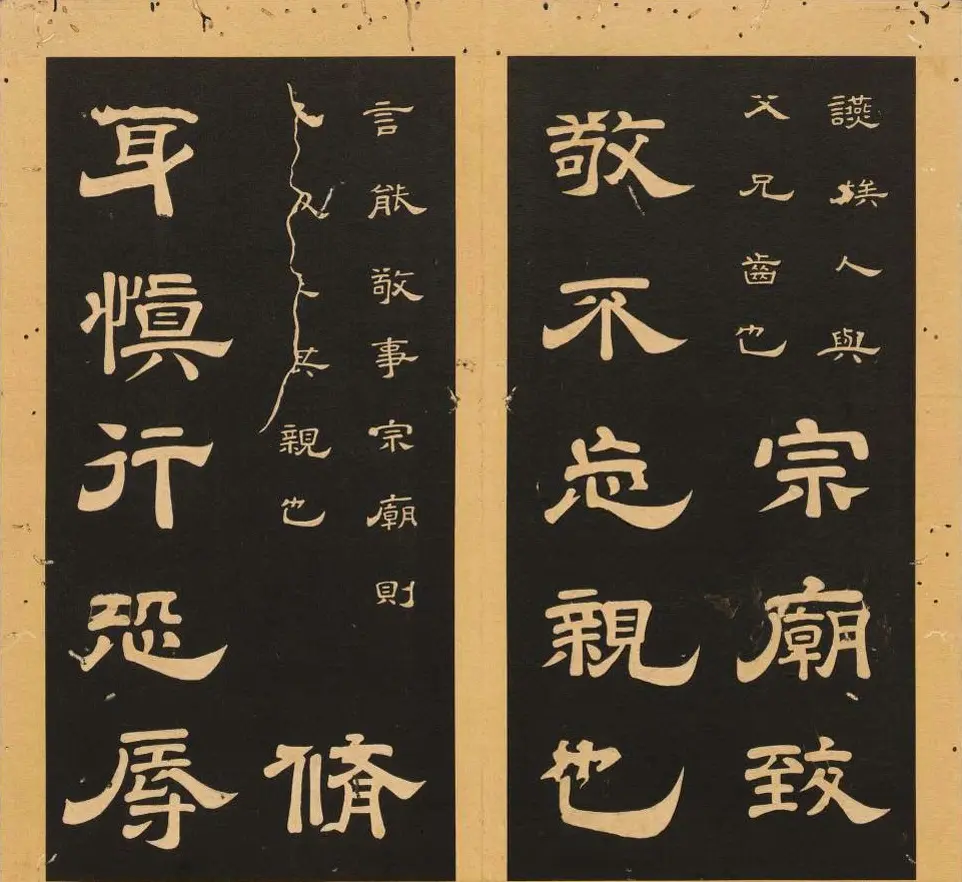 讌族人與
父兄齒也
宗廟致
敬不忘親也
言能敬事宗廟則
其親也
脩
身愼行恐辱